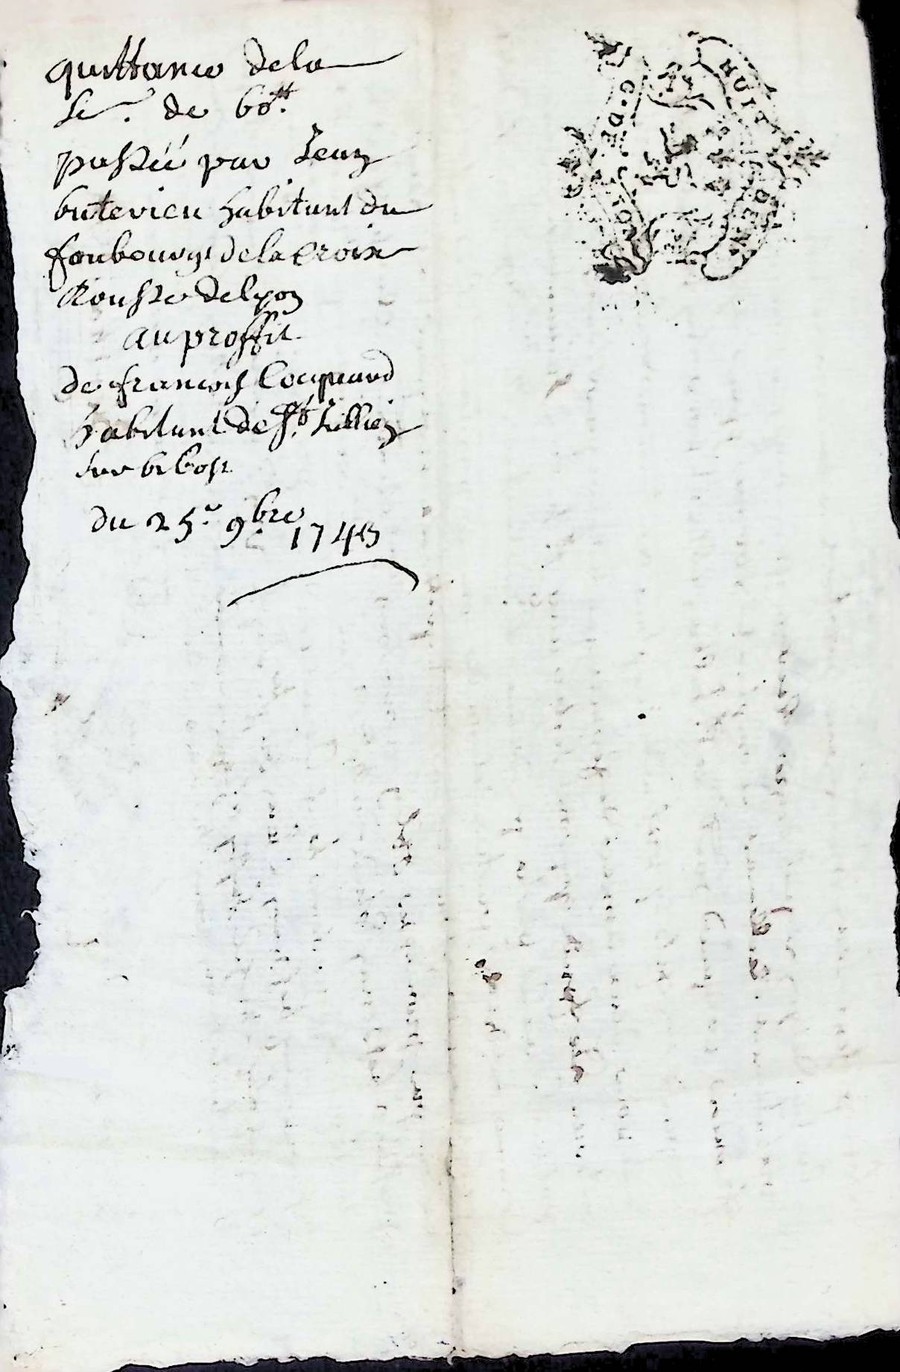 quittance dela
Se. de 60tt.
passéé par Jean
butevieu habitant du
foubourgt dela Croix
Rousse delyon
au proffit
de françois Cocquard
habitant de St. Jullien
sur bibost
du 25e 9bre 1745
G. DE LION
HUIT DEN.